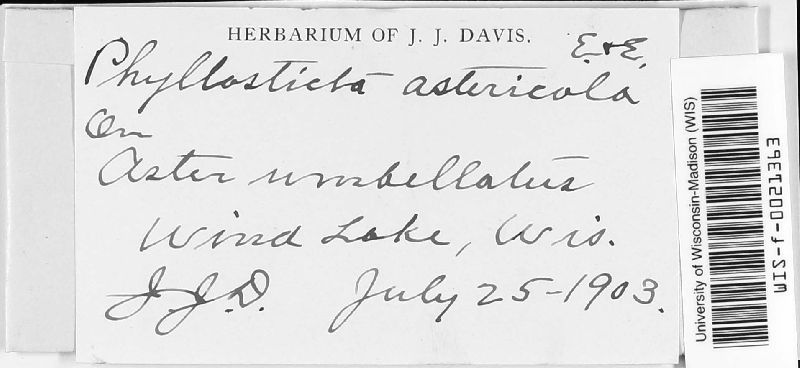 HERBARIUM OF J. J. DAVIS.
Phyllosticta astericola E. & E.
On
Aster umbellatus
Wind Lake, Wis.
J. J. D. July 25-1903.
University of Wisconsin-Madison (WIS)
WIS-f-0021363